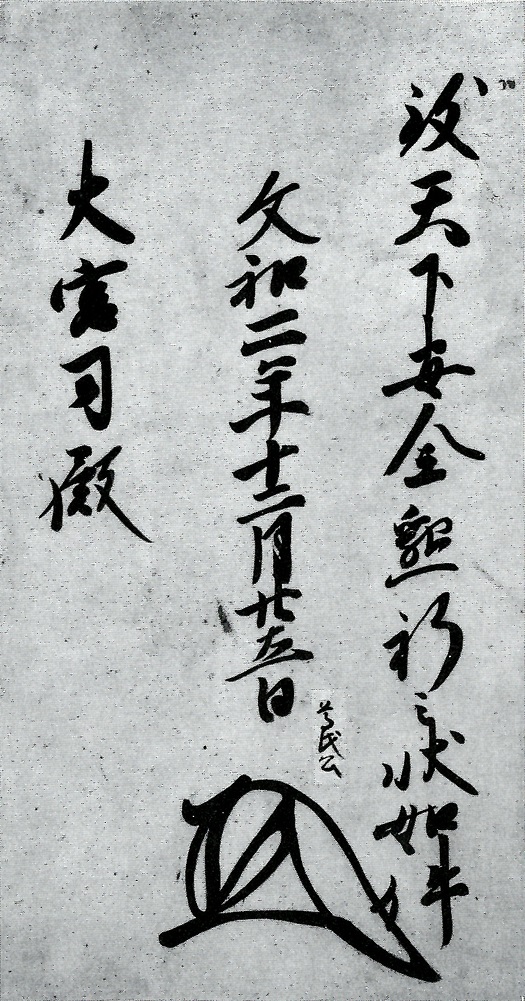 致天下安全懇祈之状如件
文和二年十二月廿五日
尊氏公
大宮司殿